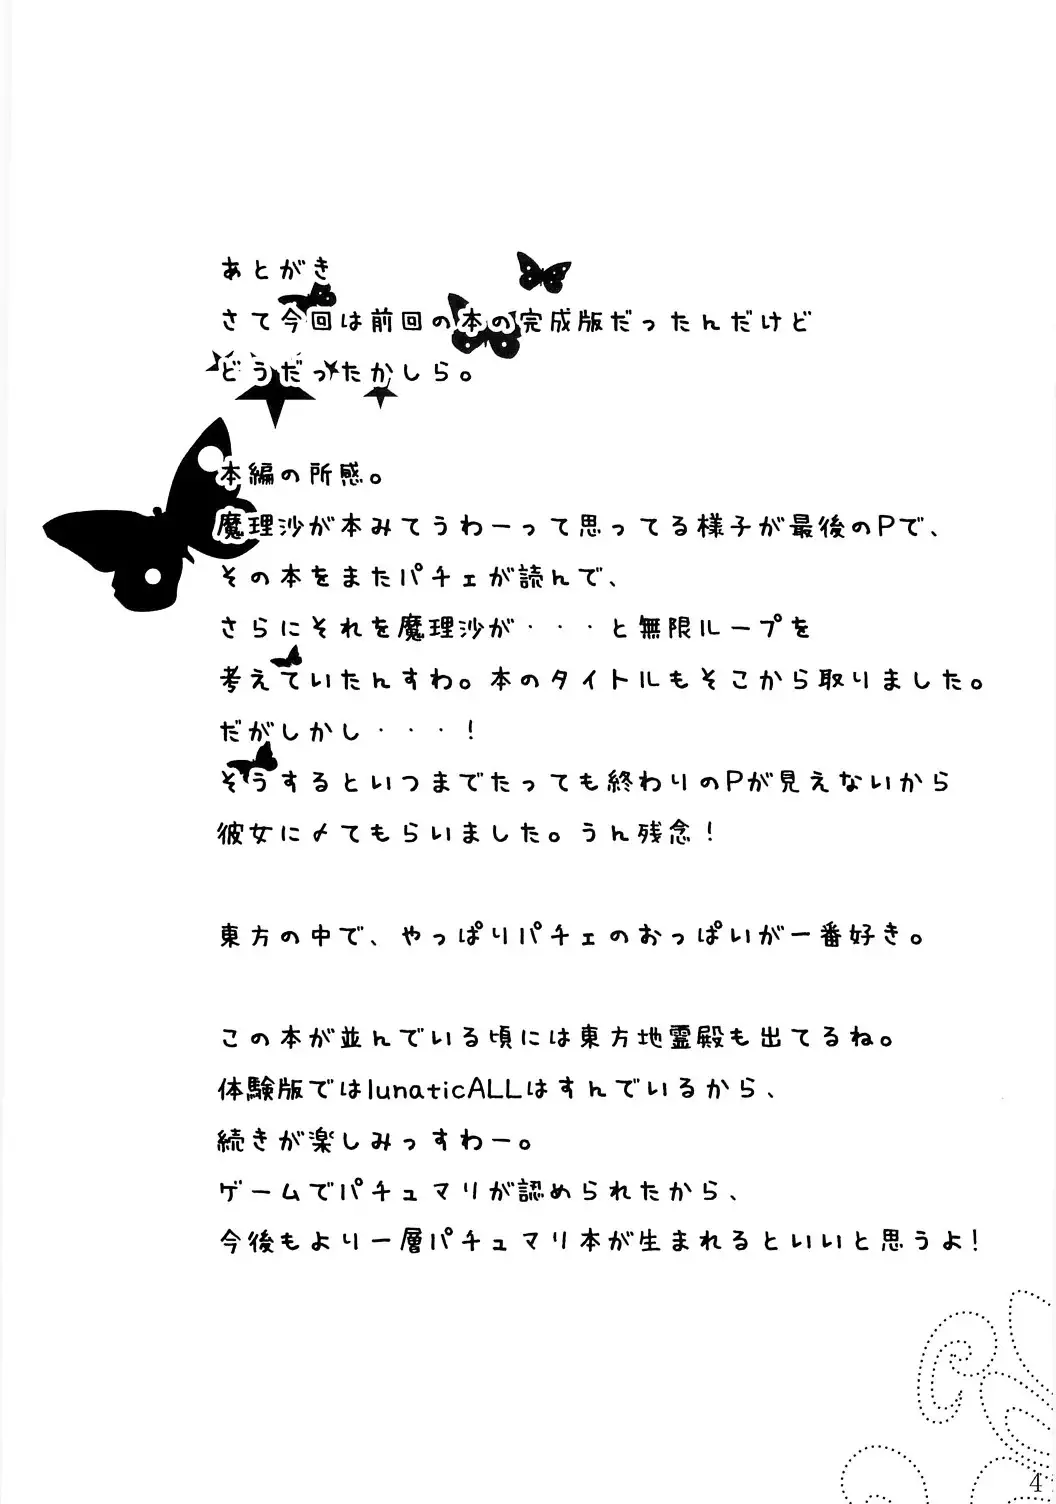 あとがき
さて今回は前回の本の完成版だったんだけど
どうだったかしら。
本編の所感。
魔理沙が本みてうわーって思ってる様子が最後のPで、
その本をまたパチェが読んで、
さらにそれを魔理沙が・・・と無限ループを
考えていたんすわ。本のタイトルもそこから取りました。
だがしかし・・・！
そうするといつまでたっても終わりのPが見えないから
彼女に〆てもらいました。うん残念！
東方の中で、やっぱりパチェのおっぱいが一番好き。
この本が並んでいる頃には東方地霊殿も出てるね。
体験版ではlunaticALLはすんでいるから、
続きが楽しみっすわー。
ゲームでパチュマリが認められたから、
今後もより一層パチュマリ本が生まれるといいと思うよ！
4